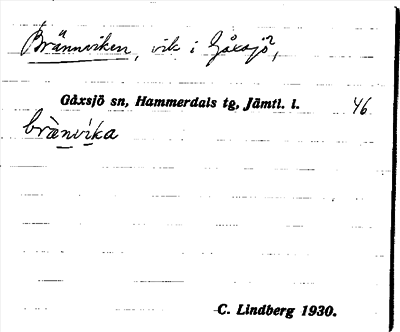 Brännviken, vik i Gåxsjö,
Gåxsjö sn, Hammerdals tg, Jämtl. l. 46
brä̀nvíka
C. Lindberg 1930.